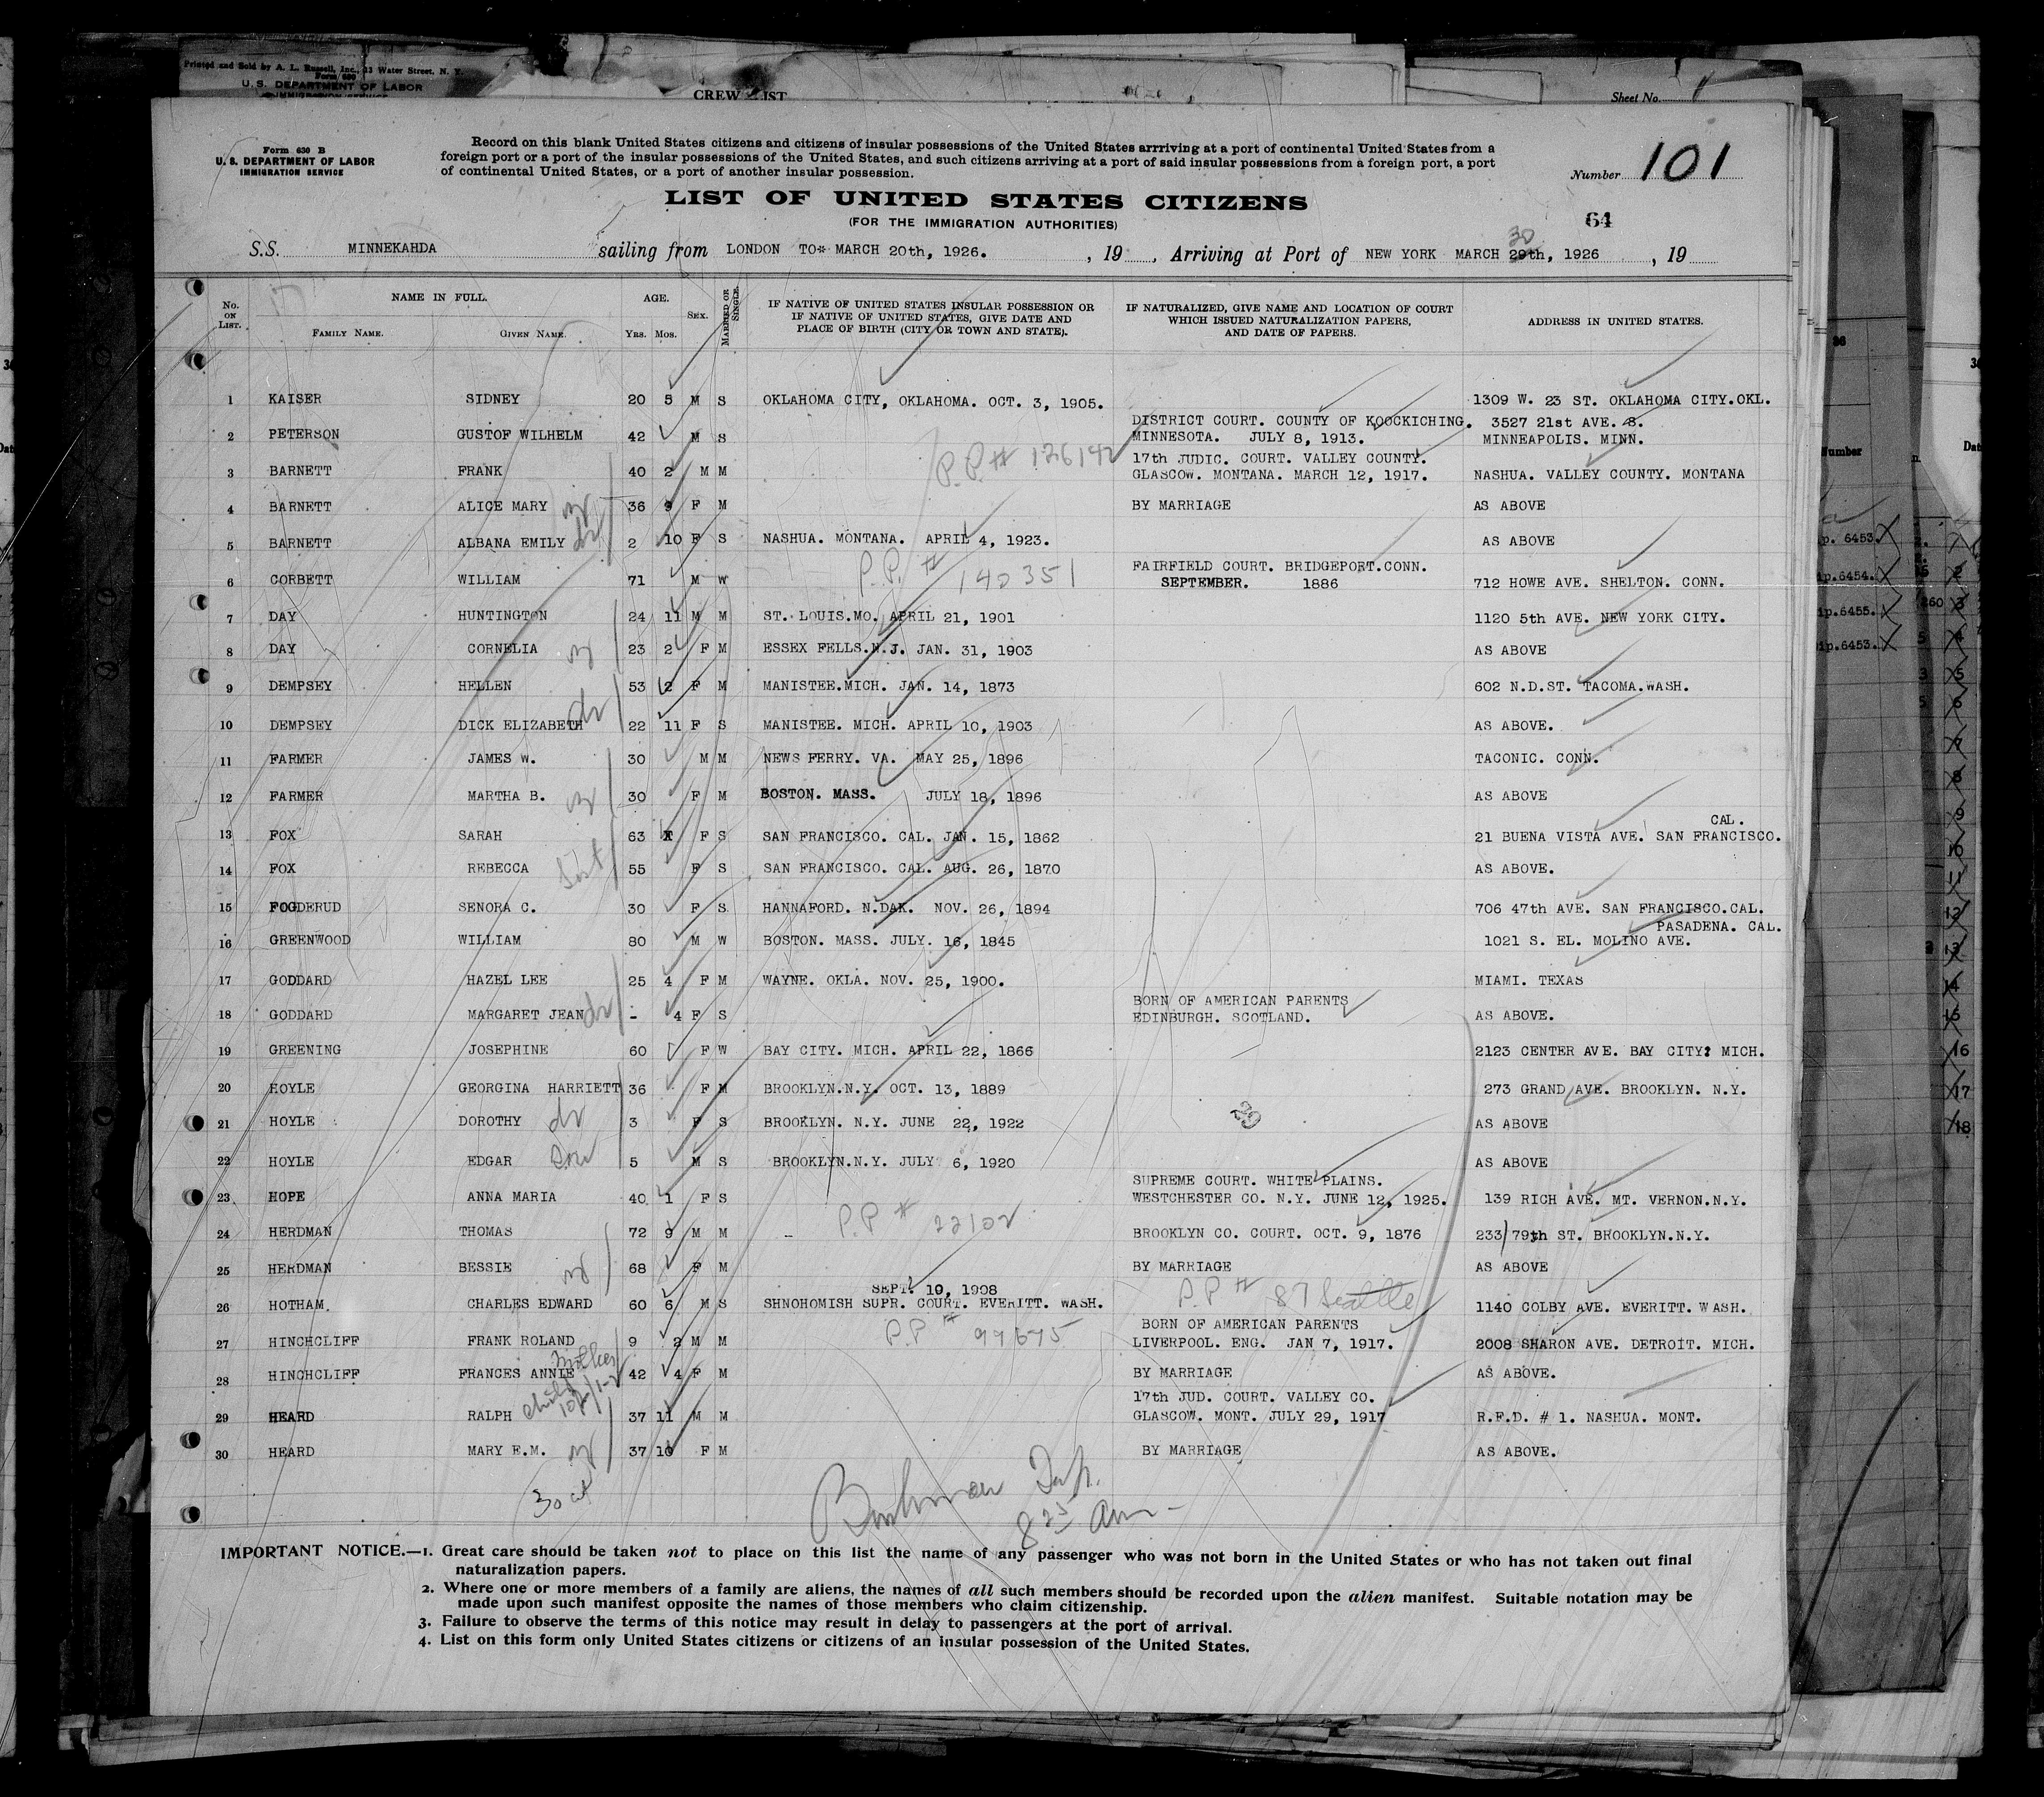 Printed and Sold by A. L. Russell, Inc., 23 Water Street, N. Y.
Form 680
U. S. DEPARTMENT OF LABOR
IMMIGRATION SERVICE
CREW LIST
Sheet No.
Form 630 B
U. S. DEPARTMENT OF LABOR
IMMIGRATION SERVICE
Record on this blank United States citizens and citizens of insular possessions of the United States arrriving at a port of continental United States from a
foreign port or a port of the insular possessions of the United States, and such citizens arriving at a port of said insular possessions from a foreign port, a port
of continental United States, or a port of another insular possession.
Number 101
LIST OF UNITED STATES CITIZENS
(FOR THE IMMIGRATION AUTHORITIES)
64
S.S. MINNEKAHDA sailing from LONDON TO* MARCH 20th, 1926. , 19 , Arriving at Port of NEW YORK MARCH 29th, 1926 , 19
30
No. ON LIST. NAME IN FULL. FAMILY NAME. GIVEN NAME. AGE. Yrs. Mos. SEX. MARRIED OR SINGLE. IF NATIVE OF UNITED STATES INSULAR POSSESSION OR IF NATIVE OF UNITED STATES, GIVE DATE AND PLACE OF BIRTH (CITY OR TOWN AND STATE). IF NATURALIZED, GIVE NAME AND LOCATION OF COURT WHICH ISSUED NATURALIZATION PAPERS, AND DATE OF PAPERS. ADDRESS IN UNITED STATES.
1 KAISER SIDNEY 20 5 M S OKLAHOMA CITY, OKLAHOMA. OCT. 3, 1905. 1309 W. 23 ST. OKLAHOMA CITY.OKL.
DISTRICT COURT. COUNTY OF KOOCKICHING. 3527 21st AVE. S.
2 PETERSON GUSTOF WILHELM 42 M S MINNESOTA. JULY 8, 1913. MINNEAPOLIS. MINN.
P.P.# 126142 17th JUDIC. COURT. VALLEY COUNTY.
3 BARNETT FRANK 40 2 M M GLASCOW. MONTANA. MARCH 12, 1917. NASHUA. VALLEY COUNTY. MONTANA
4 BARNETT ALICE MARY 36 9 F M BY MARRIAGE AS ABOVE
5 BARNETT ALBANA EMILY dr 2 10 F S NASHUA. MONTANA. APRIL 4, 1923. AS ABOVE
P.P. # 140351 FAIRFIELD COURT. BRIDGEPORT.CONN.
6 CORBETT WILLIAM 71 M W SEPTEMBER. 1886 712 HOWE AVE. SHELTON. CONN.
7 DAY HUNTINGTON 24 11 M M ST. LOUIS.MO. APRIL 21, 1901 1120 5th AVE. NEW YORK CITY.
8 DAY CORNELIA 23 2 F M ESSEX FELLS.N.J. JAN. 31, 1903 AS ABOVE
9 DEMPSEY HELLEN 53 2 F M MANISTEE.MICH. JAN. 14, 1873 602 N.D.ST. TACOMA.WASH.
10 DEMPSEY DICK ELIZABETH dr 22 11 F S MANISTEE. MICH. APRIL 10, 1903 AS ABOVE.
11 FARMER JAMES W. 30 M M NEWS FERRY. VA. MAY 25, 1896 TACONIC. CONN.
12 FARMER MARTHA B. 30 F M BOSTON. MASS. JULY 18, 1896 AS ABOVE
CAL.
13 FOX SARAH 63 F S SAN FRANCISCO. CAL. JAN. 15, 1862 21 BUENA VISTA AVE. SAN FRANCISCO.
14 FOX REBECCA sist 55 F S SAN FRANCISCO. CAL. AUG. 26, 1870 AS ABOVE.
15 FOGDERUD SENORA C. 30 F S HANNAFORD. N.DAK. NOV. 26, 1894 706 47th AVE. SAN FRANCISCO.CAL.
PASADENA. CAL.
16 GREENWOOD WILLIAM 80 M W BOSTON. MASS. JULY. 16, 1845 1021 S. EL. MOLINO AVE.
17 GODDARD HAZEL LEE 25 4 F M WAYNE. OKLA. NOV. 25, 1900. MIAMI. TEXAS
BORN OF AMERICAN PARENTS
18 GODDARD MARGARET JEAN dr - 4 F S EDINBURGH. SCOTLAND. AS ABOVE.
19 GREENING JOSEPHINE 60 F W BAY CITY. MICH. APRIL 22, 1866 2123 CENTER AVE. BAY CITY. MICH.
20 HOYLE GEORGINA HARRIETT 36 F M BROOKLYN.N.Y. OCT. 13, 1889 273 GRAND AVE. BROOKLYN. N.Y.
29
21 HOYLE DOROTHY dr 3 F S BROOKLYN. N.Y. JUNE 22, 1922 AS ABOVE
22 HOYLE EDGAR son 5 M S BROOKLYN.N.Y. JULY 6, 1920 AS ABOVE
SUPREME COURT. WHITE PLAINS.
23 HOPE ANNA MARIA 40 1 F S WESTCHESTER CO. N.Y. JUNE 12, 1925. 139 RICH AVE. MT. VERNON.N.Y.
P.P # 22102
24 HERDMAN THOMAS 72 9 M M - BROOKLYN CO. COURT. OCT. 9, 1876 233 79th ST. BROOKLYN.N.Y.
25 HERDMAN BESSIE 68 F M BY MARRIAGE AS ABOVE
SEPT. 10, 1908 P.P # 87 Seattle
26 HOTHAM. CHARLES EDWARD 60 6 M S SHNOHOMISH SUPR. COURT. EVERITT. WASH. 1140 COLBY AVE. EVERITT. WASH.
P.P # 99695 BORN OF AMERICAN PARENTS
27 HINCHCLIFF FRANK ROLAND 9 2 M M LIVERPOOL. ENG. JAN 7, 1917. 2008 SHARON AVE. DETROIT. MICH.
mother
28 HINCHCLIFF FRANCES ANNIE 42 4 F M BY MARRIAGE AS ABOVE.
child 17th JUD. COURT. VALLEY CO.
29 HEARD RALPH 37 11 M M GLASCOW. MONT. JULY 29, 1917 R.F.D. # 1. NASHUA. MONT.
30 HEARD MARY E.M. 37 10 F M BY MARRIAGE AS ABOVE.
30
8 25 am
IMPORTANT NOTICE.—1. Great care should be taken not to place on this list the name of any passenger who was not born in the United States or who has not taken out final
naturalization papers.
2. Where one or more members of a family are aliens, the names of all such members should be recorded upon the alien manifest. Suitable notation may be
made upon such manifest opposite the names of those members who claim citizenship.
3. Failure to observe the terms of this notice may result in delay to passengers at the port of arrival.
4. List on this form only United States citizens or citizens of an insular possession of the United States.